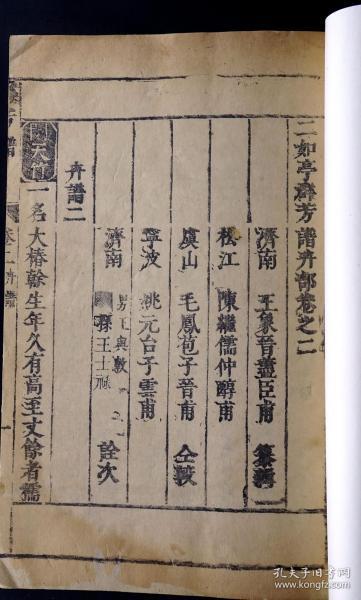 二如亭群芳譜卉部卷之二
濟南 王象晉藎臣甫 纂輯
松江 陳繼儒仲醇甫
虞山 毛鳳苞子晉甫 仝較
寧波 姚元台子雲甫
濟南 男王與敕
孫王士禄 詮次
卉譜二
一名大椿餘生年久有高至丈餘者蘺
孔夫子旧书网
kongfz.com